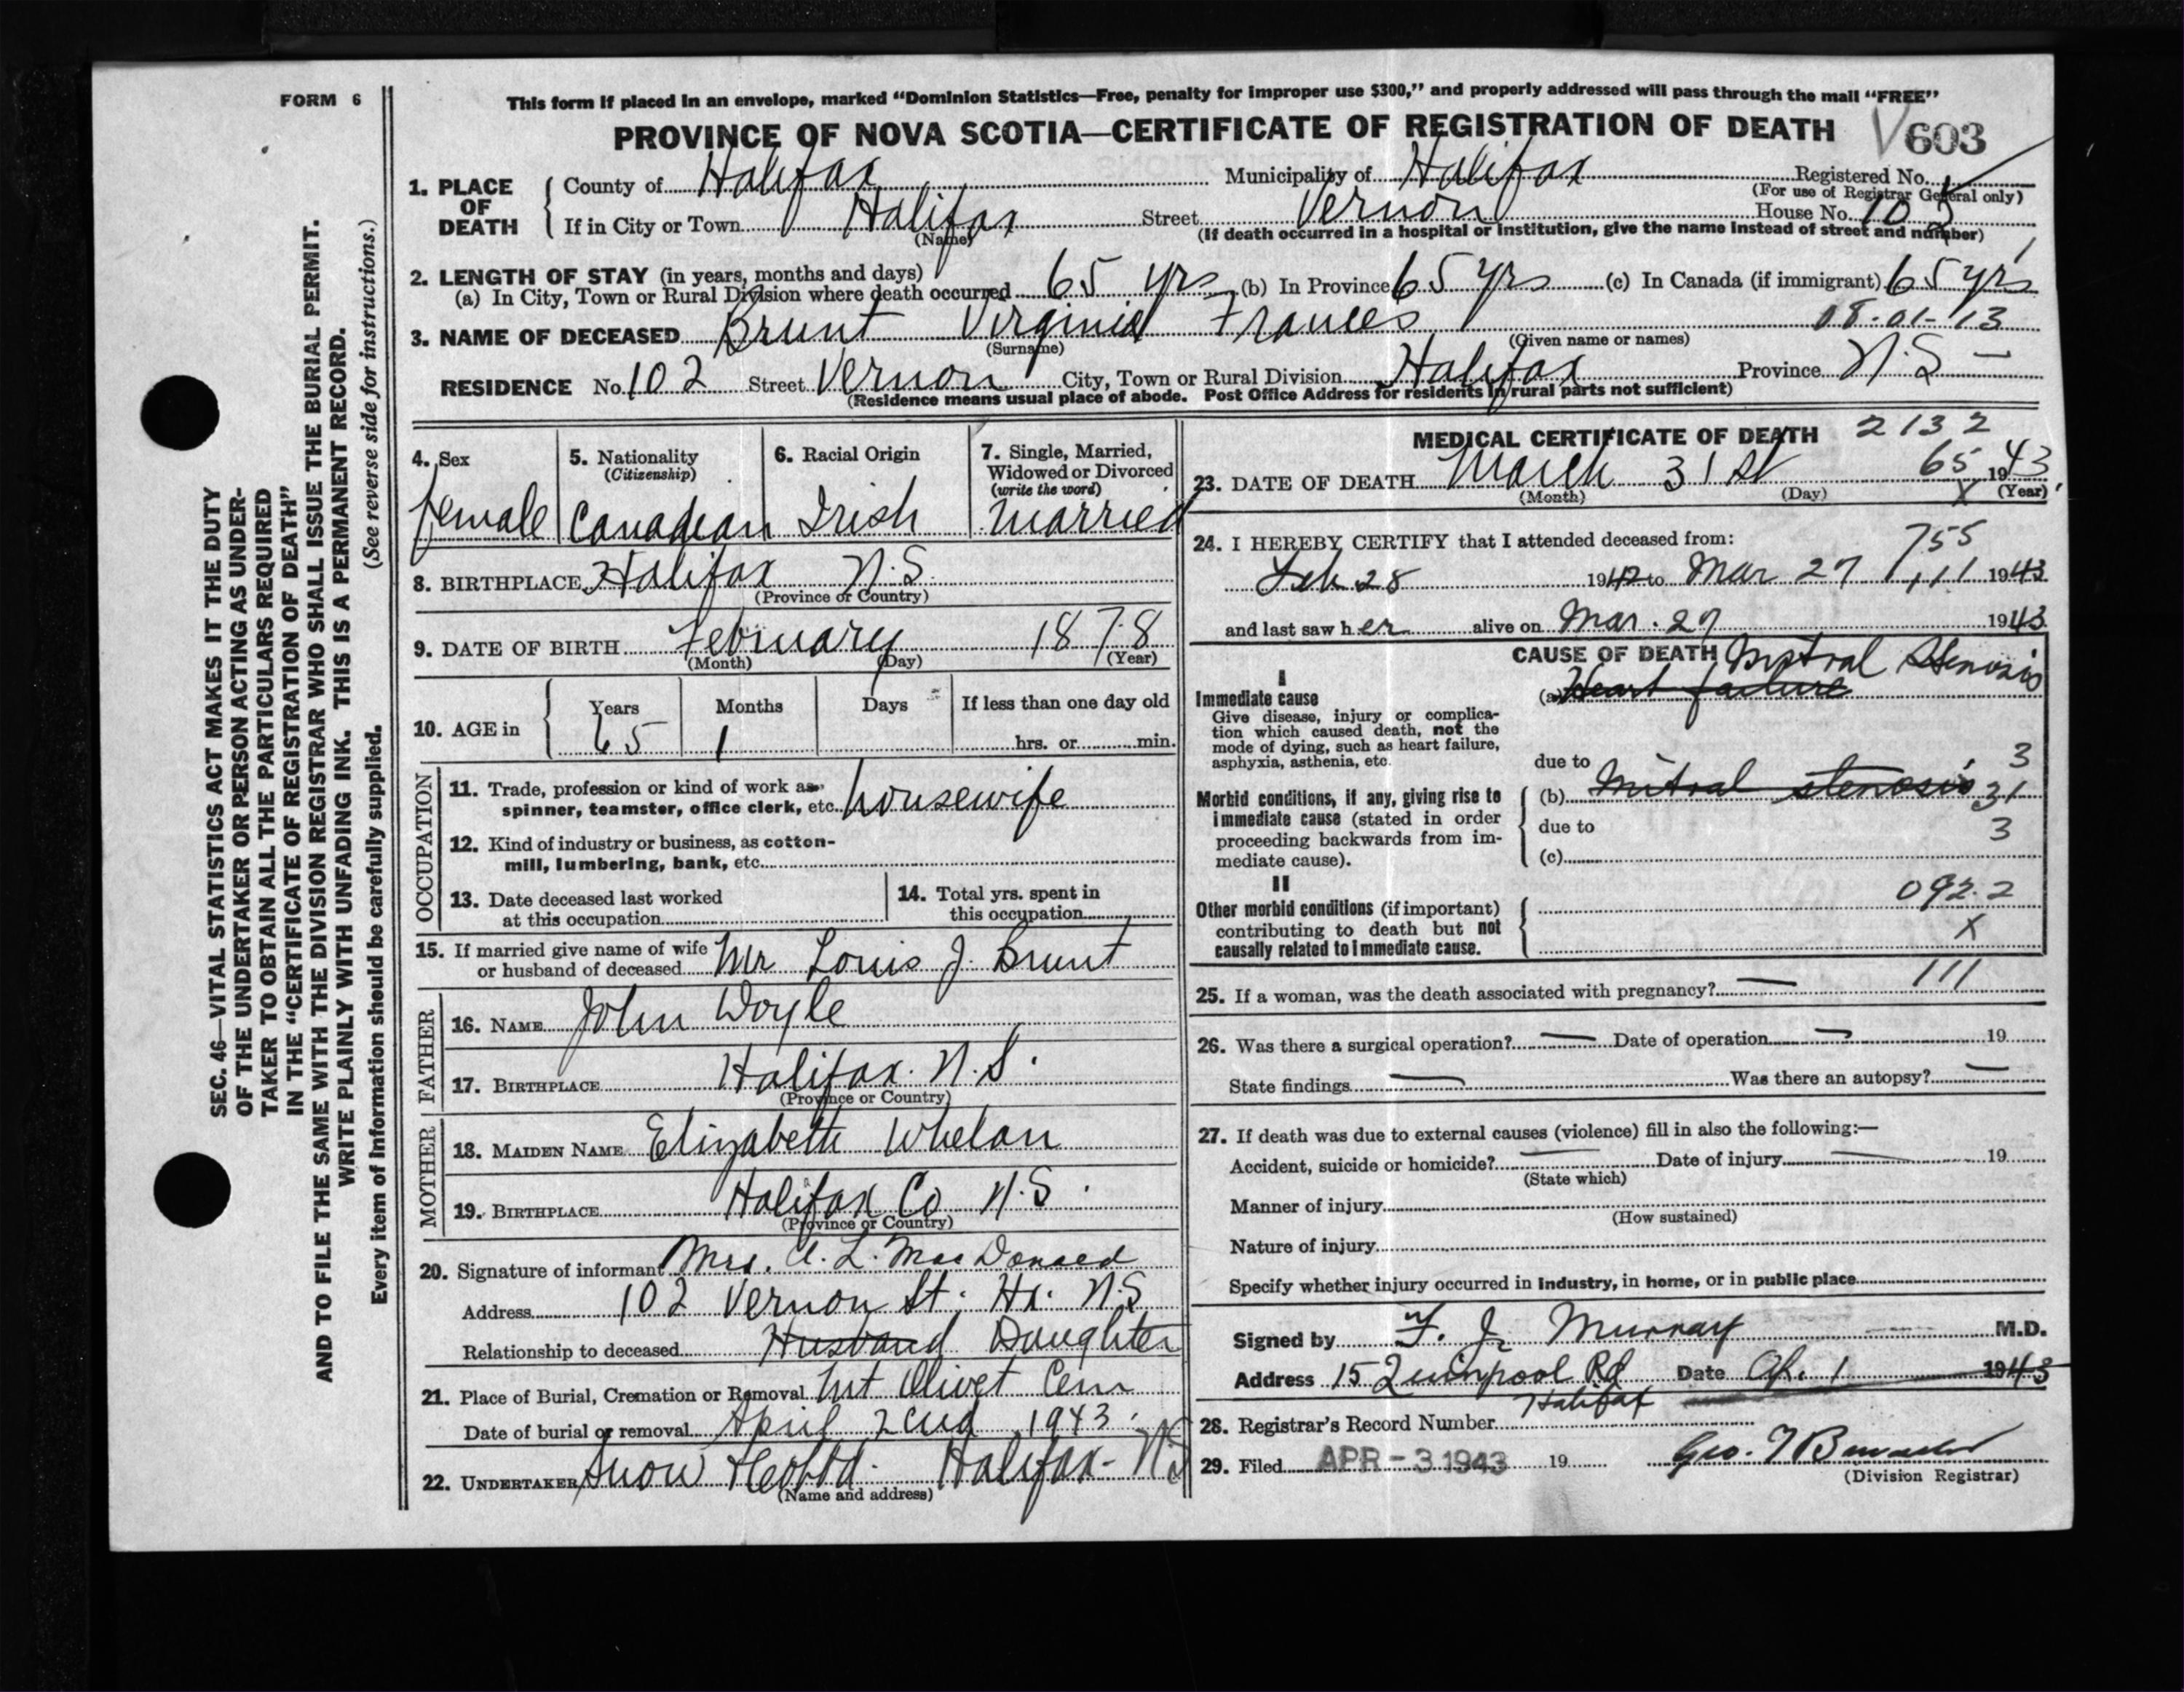 FORM 6
This form if placed in an envelope, marked “Dominion Statistics—Free, penalty for improper use $300,” and properly addressed will pass through the mail “FREE”
PROVINCE OF NOVA SCOTIA—CERTIFICATE OF REGISTRATION OF DEATH 603
1. PLACE OF DEATH
County of Halifax Municipality of Halifax Registered No.
(For use of Registrar General only)
If in City or Town Halifax Street Vernon House No. 102
(Name) (If death occurred in a hospital or institution, give the name instead of street and number)
2. LENGTH OF STAY (in years, months and days)
(a) In City, Town or Rural Division where death occurred 65 yrs (b) In Province 65 yrs (c) In Canada (if immigrant) 65 yrs
3. NAME OF DECEASED Brunt Virginia Frances 08-01-13
(Surname) (Given name or names)
RESIDENCE No. 102 Street Vernon City, Town or Rural Division Halifax Province N.S —
(Residence means usual place of abode. Post Office Address for residents in rural parts not sufficient)
4. Sex
female
5. Nationality
(Citizenship)
Canadian
6. Racial Origin
Irish
7. Single, Married,
Widowed or Divorced
(write the word)
Married
8. BIRTHPLACE Halifax N.S.
(Province or Country)
9. DATE OF BIRTH February 1878
(Month) (Day) (Year)
10. AGE in
Years Months Days If less than one day old
65 1 hrs. or min.
OCCUPATION
11. Trade, profession or kind of work as
spinner, teamster, office clerk, etc. housewife
12. Kind of industry or business, as cotton-
mill, lumbering, bank, etc.
13. Date deceased last worked
at this occupation
14. Total yrs. spent in
this occupation
15. If married give name of wife
or husband of deceased Mr Louis J. Brunt
FATHER
16. NAME John Doyle
17. BIRTHPLACE Halifax. N.S.
(Province or Country)
MOTHER
18. MAIDEN NAME Elizabeth Whelan
19. BIRTHPLACE Halifax Co N.S.
(Province or Country)
20. Signature of informant Mrs. A. L. MacDonald
Address 102 Vernon St. Hx. N.S
Relationship to deceased Husband Daughter
21. Place of Burial, Cremation or Removal Mt Olivet Cem
Date of burial or removal April 2cnd 1943
22. UNDERTAKER Snow & Co Ltd. Halifax- NS
(Name and address)
MEDICAL CERTIFICATE OF DEATH 2132
65
23. DATE OF DEATH March 31st 1943
(Month) (Day) X (Year)
24. I HEREBY CERTIFY that I attended deceased from: 755
Feb 28 1942 to Mar 27 1943
and last saw her alive on Mar. 27 1943
CAUSE OF DEATH Mitral Stenosis
I
Immediate cause
Give disease, injury or complica-
tion which caused death, not the
mode of dying, such as heart failure,
asphyxia, asthenia, etc.
(a) Heart failure
due to 3
Morbid conditions, if any, giving rise to
immediate cause (stated in order
proceeding backwards from im-
mediate cause).
(b) Mitral stenosis 31
due to 3
(c)
II
Other morbid conditions (if important)
contributing to death but not
causally related to immediate cause.
092.2
X
25. If a woman, was the death associated with pregnancy? — 111
26. Was there a surgical operation? — Date of operation — 19
State findings — Was there an autopsy? —
27. If death was due to external causes (violence) fill in also the following:—
Accident, suicide or homicide? — Date of injury — 19
(State which)
Manner of injury
(How sustained)
Nature of injury
Specify whether injury occurred in industry, in home, or in public place
Signed by F. J. Murray M.D.
Address 15 Quinpool Rd Date Ap. 1 1943
Halifax
28. Registrar's Record Number
29. Filed APR - 3 1943 19
(Division Registrar)
SEC. 46—VITAL STATISTICS ACT MAKES IT THE DUTY
OF THE UNDERTAKER OR PERSON ACTING AS UNDER-
TAKER TO OBTAIN ALL THE PARTICULARS REQUIRED
IN THE “CERTIFICATE OF REGISTRATION OF DEATH”
AND TO FILE THE SAME WITH THE DIVISION REGISTRAR WHO SHALL ISSUE THE BURIAL PERMIT.
WRITE PLAINLY WITH UNFADING INK. THIS IS A PERMANENT RECORD.
Every item of information should be carefully supplied. (See reverse side for instructions.)